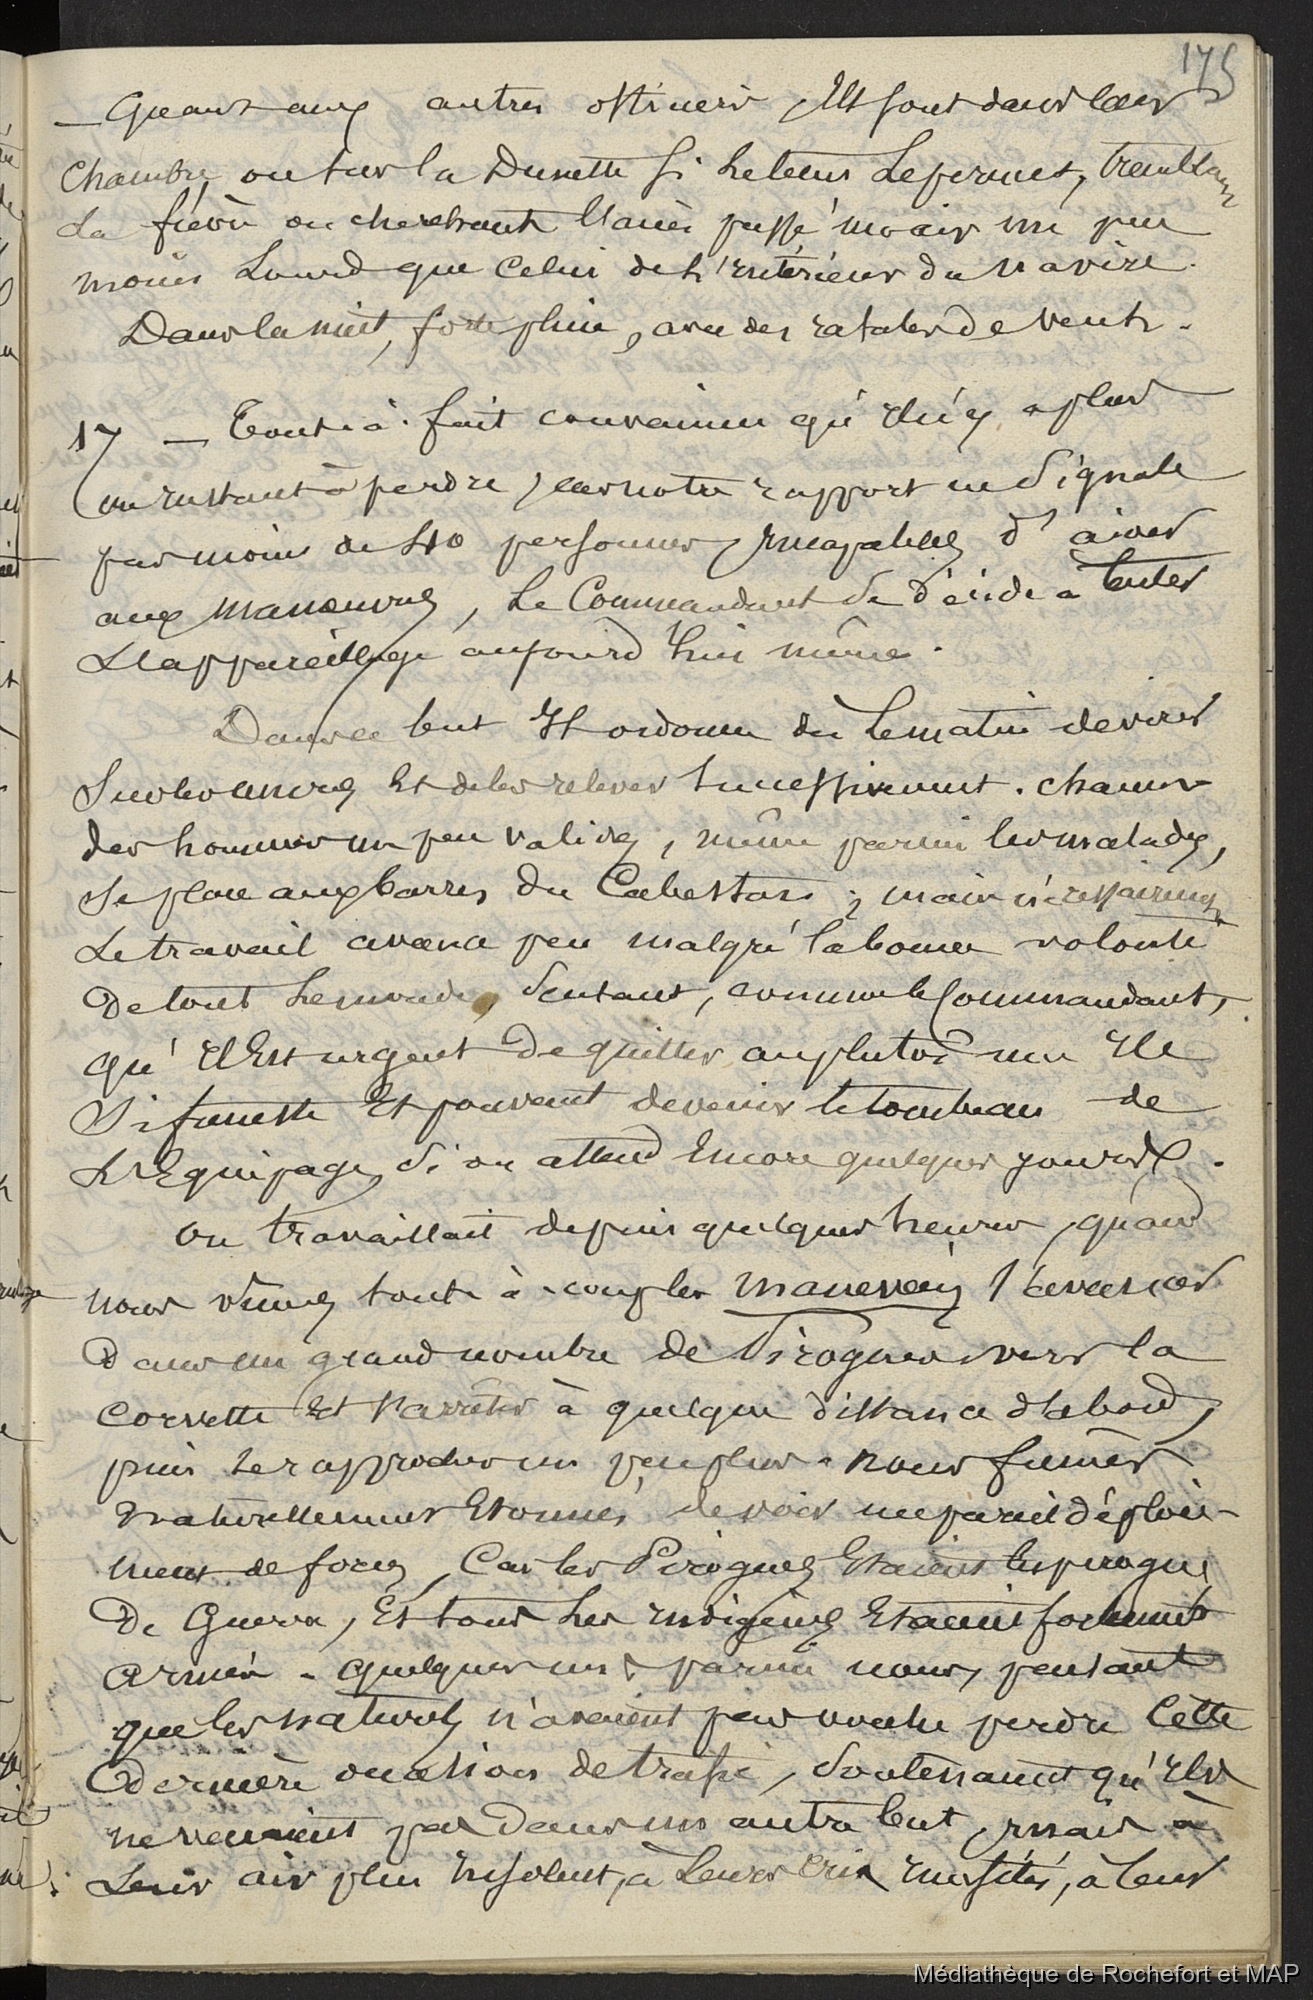 175
— Quant aux autres officiers, Ils sont dans leur
Chambre, ou sur la Dunette si le tems le permet, tremblant
la fièvre ou cherchant l'accès passé mais un peu
moins lourd que celui de l'intérieur du navire.
Dans la nuit, forte pluie, avec des rafales de vent.
17 — Tout-à-fait convaincu qu'Il n'y a plus
un instant à perdre, car notre rapport ne signale
pas moins de 40 personnes, incapables d'aider
aux manœuvres, le Commandant se décide à tenter
l'appareillage aujourd'hui même.
Dans ce but Il ordonne dès le matin de virer
sur les ancres Et de les relever successivement. chacun
des hommes un peu valides, même parmi les malades,
se place aux barres du Cabestan ; mais nécessairement
le travail avança peu malgré la bonne volonté
de tout le monde, sentant, comme le Commandant,
qu'Il Est urgent de quitter au plutôt une Ile
si funeste Et pouvant devenir le tombeau de
l'Equipage, si on attend Encore quelques jours.
On travaillait depuis quelques heures, quand
nous vîmes tout-à-coup les manevais s'avancer
dans un grand nombre de Pirogues vers la
corvette Et s'arrêter à quelque distance d'abord,
puis se rapprocher un peu plus. nous fumes
naturellement Etonnés de voir un pareil déploie-
ment de forces, Car les Pirogues Etaient les pirogues
de Guerre, Et tous les indigènes Etaient fortement
armés. quelques uns parmi nous, pensant
que les naturels n'avaient pas voulu perdre cette
dernière occasion de trafic, soutenaient qu'Ils
ne venaient pas dans un autre but, mais à
leur air plus insolent, à leurs cris inusités, à leur